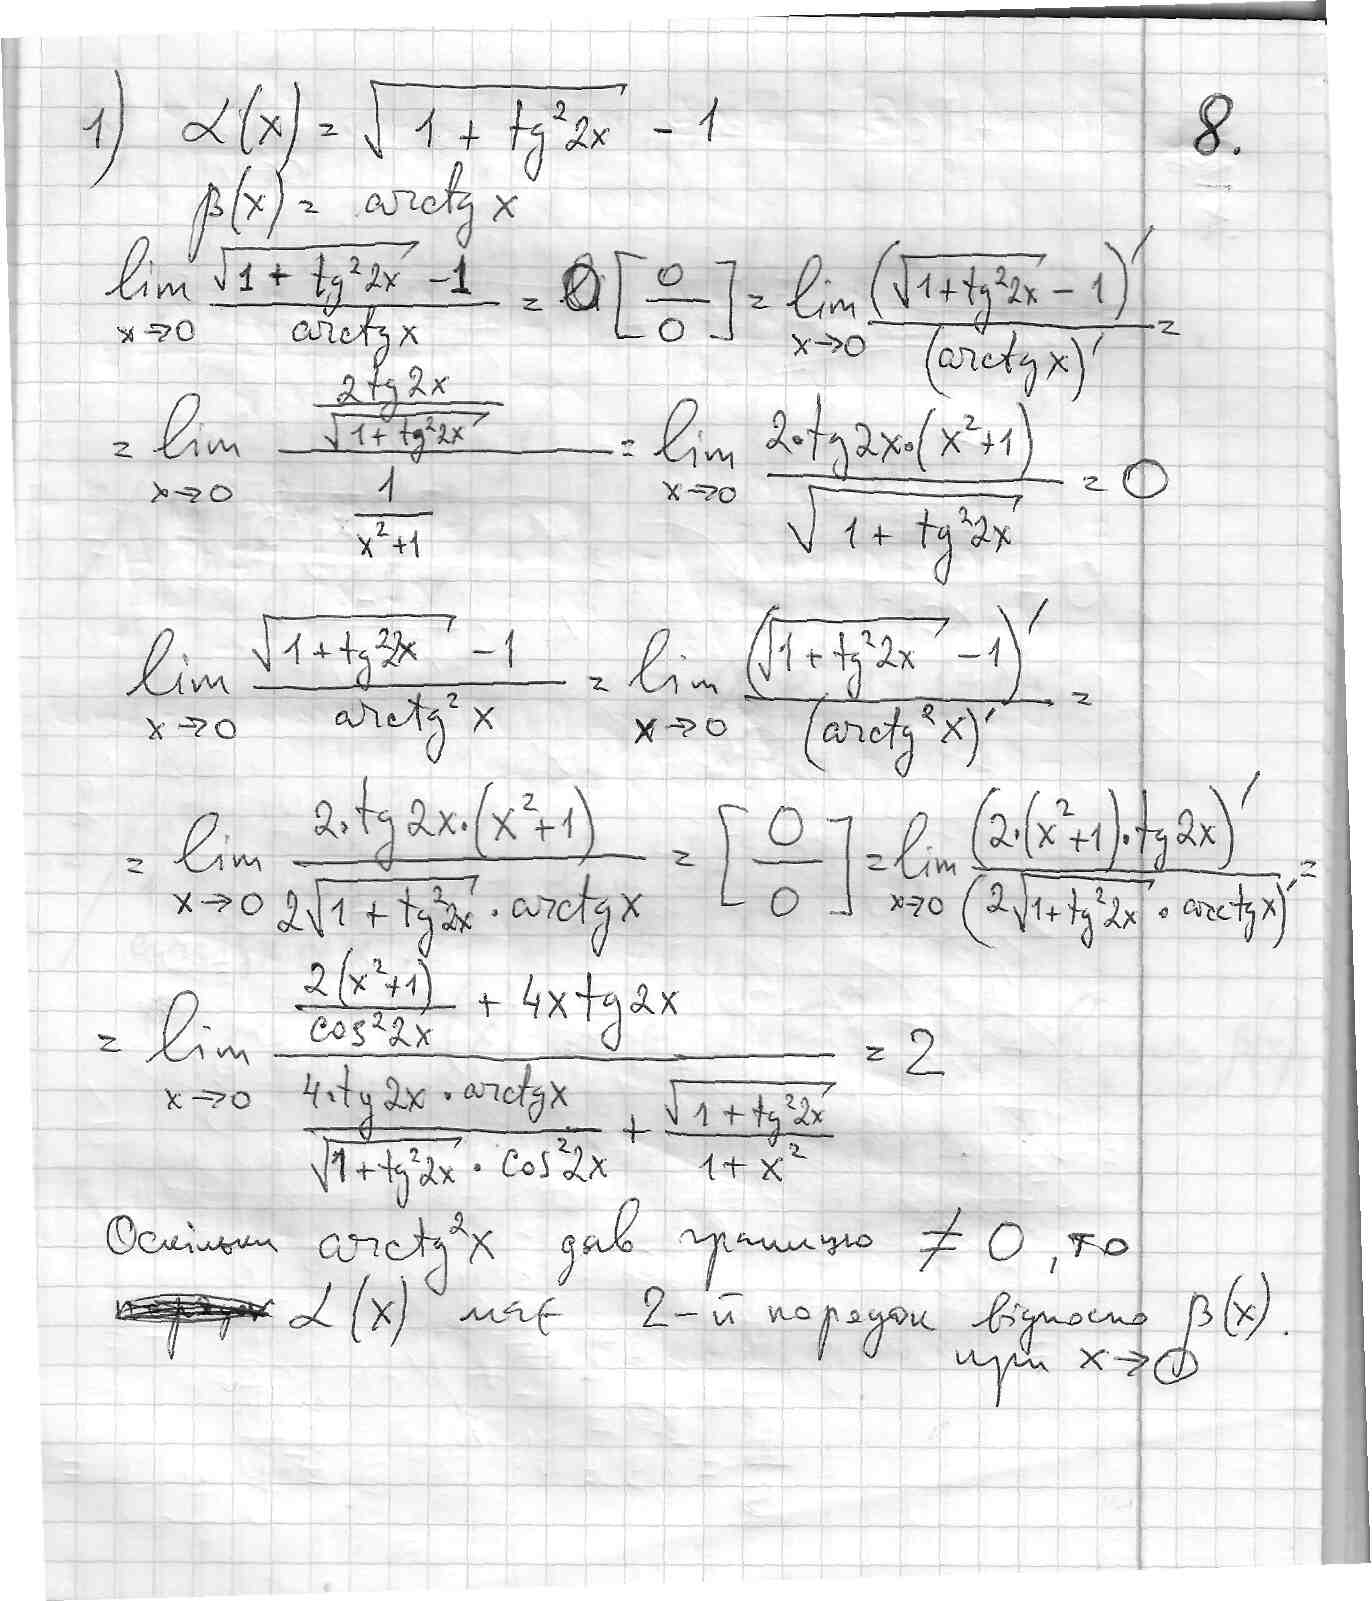 8.
1) α(x) = √(1 + tg²2x) - 1
β(x) = arctg x
lim x→0 (√(1 + tg²2x) - 1)/(arctg x) = [0/0] = lim x→0 (√(1+tg²2x) - 1)'/(arctg x)' =
= lim x→0 ((2tg2x)/(√(1+tg²2x)))/(1/(x²+1)) = lim x→0 (2·tg2x·(x²+1))/(√(1 + tg²2x)) = 0
lim x→0 (√(1+tg²2x) - 1)/(arctg² x) = lim x→0 (√(1+tg²2x) - 1)'/(arctg² x)' =
= lim x→0 (2·tg2x·(x²+1))/(2√(1+tg²2x) · arctgx) = [0/0] = lim x→0 (2·(x²+1)·tg2x)'/(2√(1+tg²2x) · arctgx)' =
= lim x→0 ((2(x²+1))/(cos²2x) + 4xtg2x)/((4·tg2x·arctgx)/(√(1+tg²2x) · cos²2x) + (√(1+tg²2x))/(1+x²)) = 2
Оскільки arctg²x дав границю ≠ 0, то
α(x) має 2-й порядок відносно β(x).
при x→0